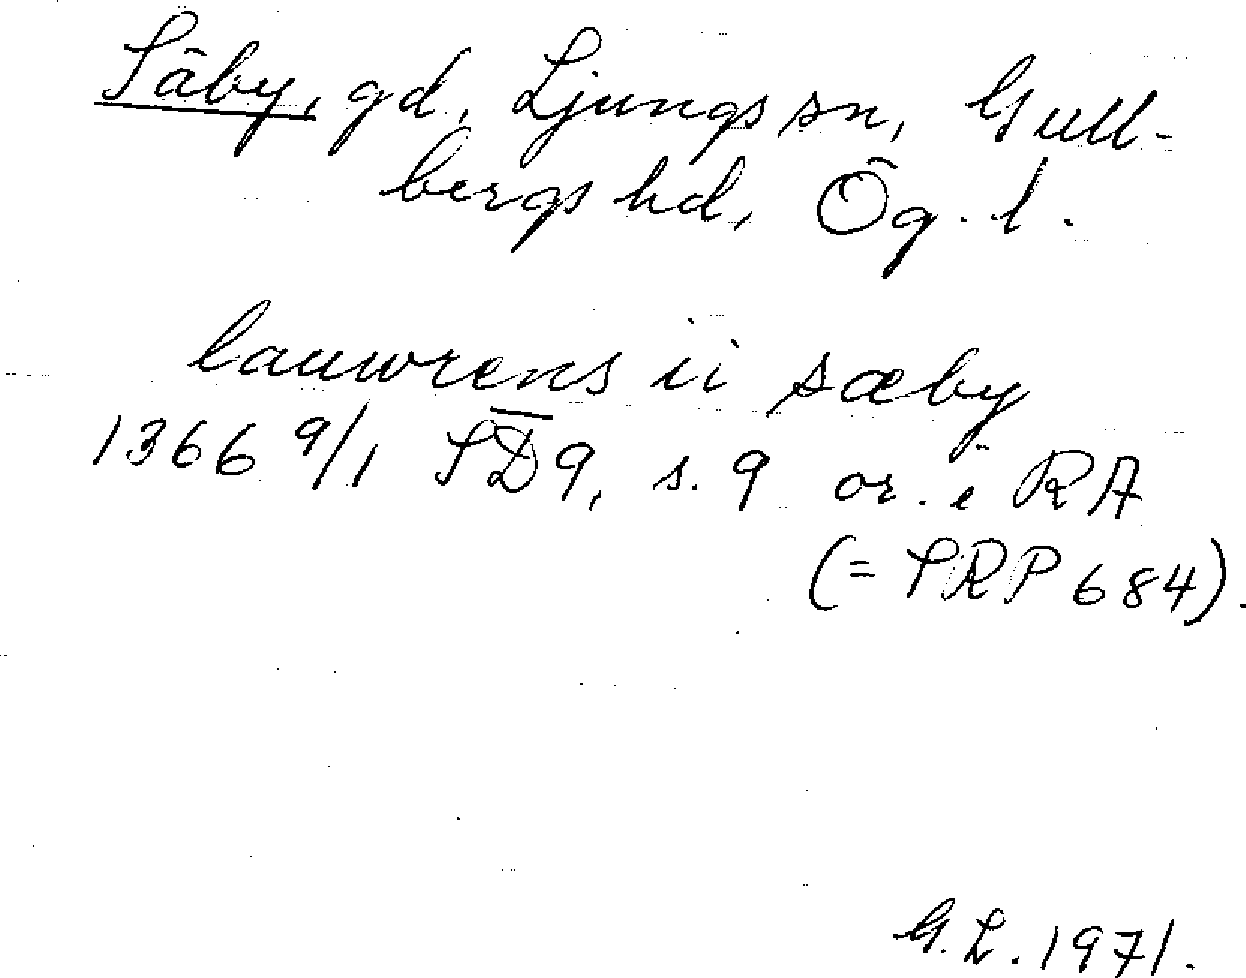 Säby, gd, Ljungs sn, Gull-
bergs hd, Ög. l.
lauwrens ii sæby
1366 9/1 SD 9, s. 9 or. i RA
(= SRP 684).
G. L. 1971.